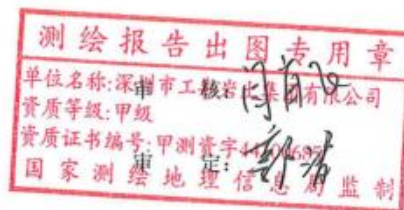 测绘报告出图专用章
单位名称:深圳市工勘岩土集团有限公司
审 核:
资质等级:甲级
资质证书编号:甲测资字
审 定:
国家测绘地理信息局监制